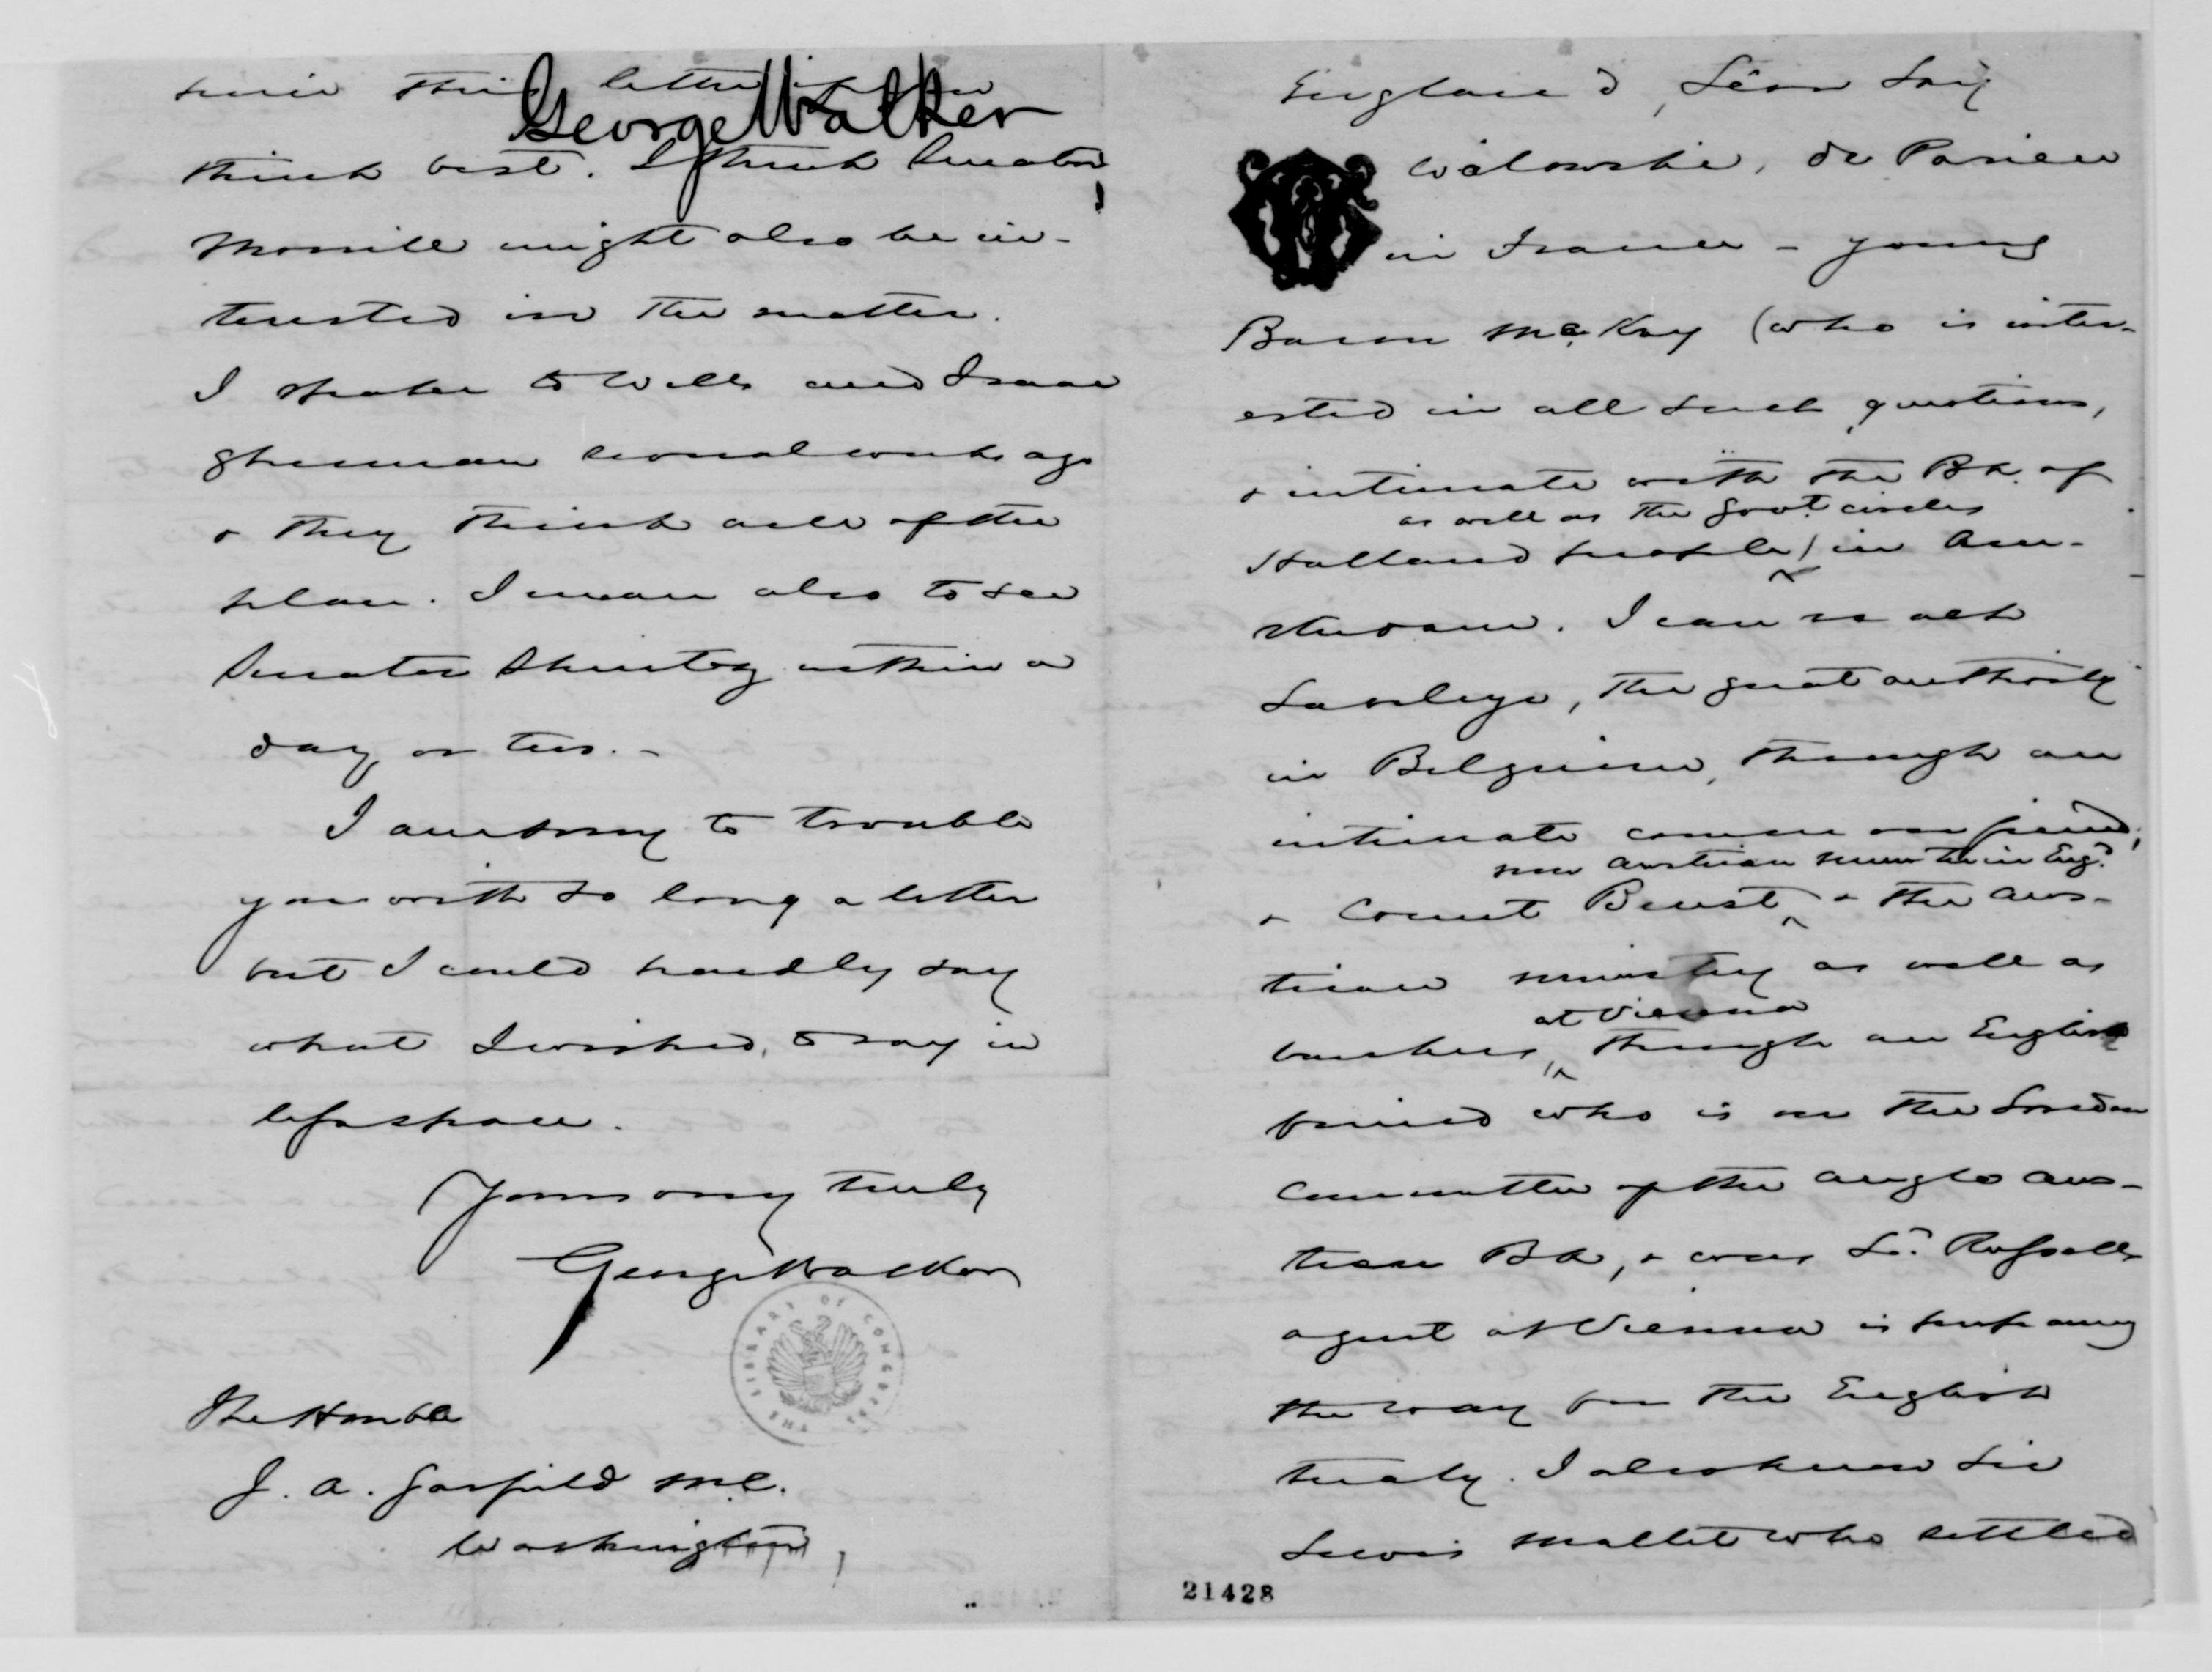 this letter if you
George Walker
think best. I think Senator
Morrill might also be in-
terested in the matter.
I spoke to Wells and Isaac
Sherman several weeks ago
& they think well of the
plan. I mean also to see
Senator within a
day or two. -
I am sorry to trouble
you with so long a letter
but I could hardly say
what I wished to say in
less space.
Yours very truly
George Walker
The Honble
J. A. Garfield M.C.
Washington
THE LIBRARY OF CONGRESS
England, Léon Say
Wolowski, de Parieu
in France - young
Baron McKay (who is inter-
ested in all such questions,
& intimate with the Bk. of
as well as the Govt. circles
Holland people) in Am-
sterdam. I can reach
Laveleye, the great authority
in Belgium, through an
intimate common friend,
now Austrian minister in Engd.
& Count Beust & the Aus-
trian ministry as well as
at Vienna
bankers, through an English
friend who is on the London
Committee of the Anglo Aus-
trian Bk, & was Ld. Russell's
agent at Vienna in preparing
the way for the English
treaty. I also know Sir
Louis Mallet who settled
21428